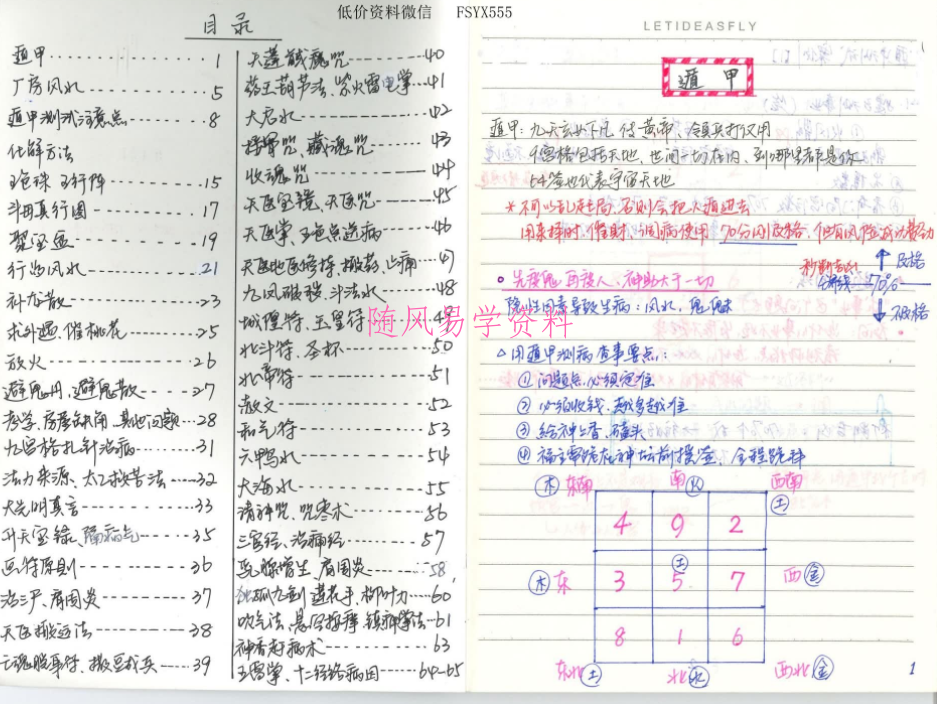 低价资料微信 FSYX555
目录
遁甲 1
厂房风水 5
遁甲测试注意点 8
化解方法
五色珠 五行阵 15
斗母真行图 17
聚宝盆 19
行出风水 21
补龙散 23
求外遇、催桃花 25
放火 26
避鬼用、避鬼散 27
考学、房屋缺角、其他问题 28
九宫格扎针治病 31
法力来源、太乙救苦法 32
大光明真言 33
升天宝录、隔病气 35
画符原则 36
治三尸、肩周炎 37
天医搬运法 38
七魂脱身符、撒豆成兵 39
天蓬藏魂咒 40
药王葫芦法、紫火雷电掌 41
大启水 42
接骨咒、藏魂咒 43
收魂咒 44
天医宝镜、天医咒 45
天医掌、五色点送病 46
天医地医修持、搬药、止痛 47
九凤破秽、斗法水 48
城隍符、玉皇符 49
北斗符、圣杯 50
北帝符 51
散文 52
和气符 53
六鸭水 54
大海水 55
请神咒、咒枣术 56
三官经、治病经 57
乳腺增生、肩周炎 58
独孤九剑 莲花手、柳叶刀 60
吹气法、悬空按摩、镇神掌法 61
神香起病术 63
五雷掌、十二经络病因 64-65
随风易学资料
LETIDEASFLY
遁甲
遁甲：九天玄女下凡 传黄帝 领兵打仗用
九宫格包括天地、世间一切在内、到哪里都是你
64签也代表宇宙天地
*不可以乱起局、否则会把人遁进去
用来择时、催财、出国病使用 70分以及格、但有风险成功
秒断吉凶
70%
及格
不及格
先度鬼 再度人、神助大于一切
隐性因素导致生病：风水，鬼魅
△用遁甲测病查事要点：
① 问题点必须定准
② 必须收钱、越多越准
③ 给神上香、磕头
④ 福主需跪在神坛前摸签、全程跪拜
木 东南 南 火 西南 土
4 9 2
木 东 3 5 土 7 西 金
8 1 6
东北 土 北 水 西北 金
1